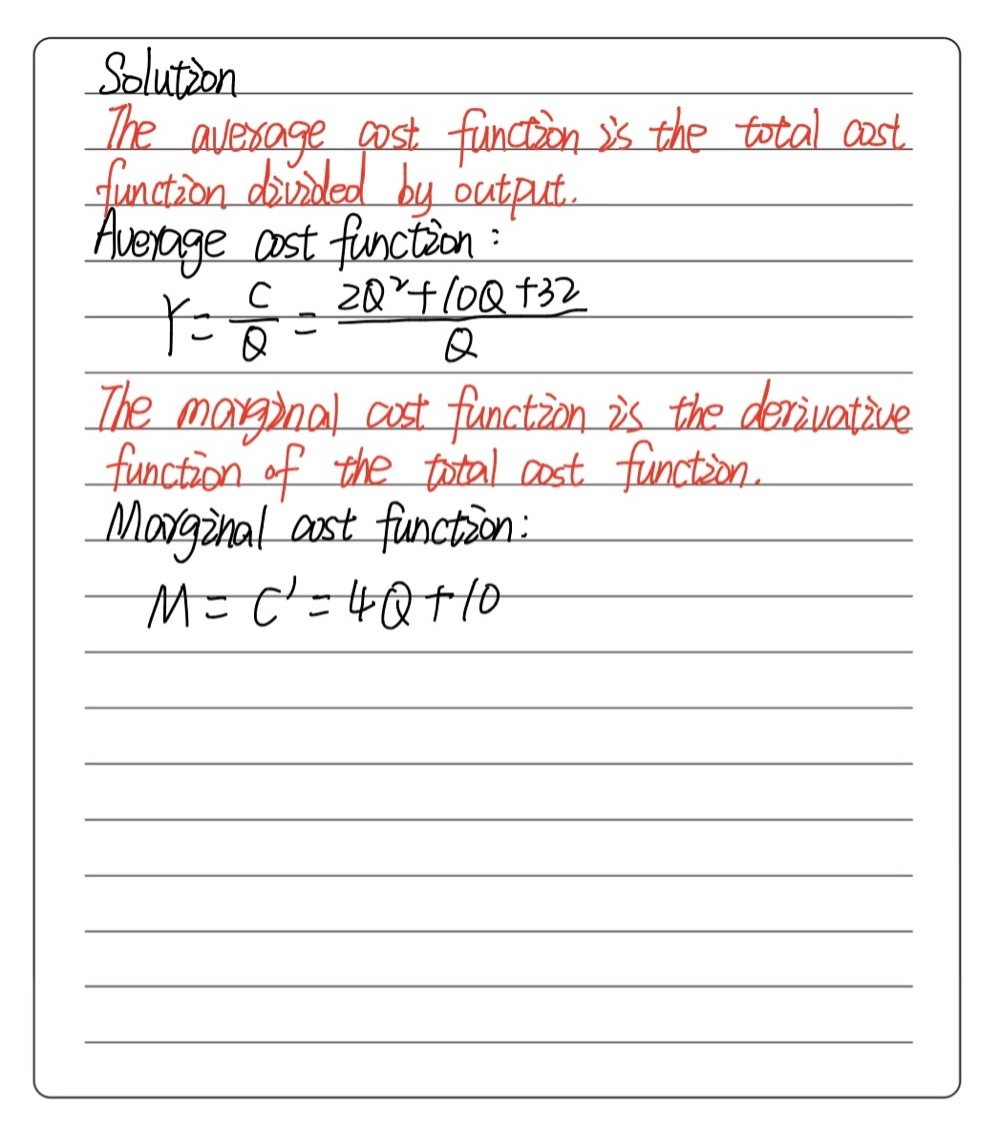 Solution
The average cost function is the total cost
function divided by output.
Average cost function:
Y = C/Q = (2Q²+10Q+32)/Q
The marginal cost function is the derivative
function of the total cost function.
Marginal cost function:
M = C' = 4Q+10